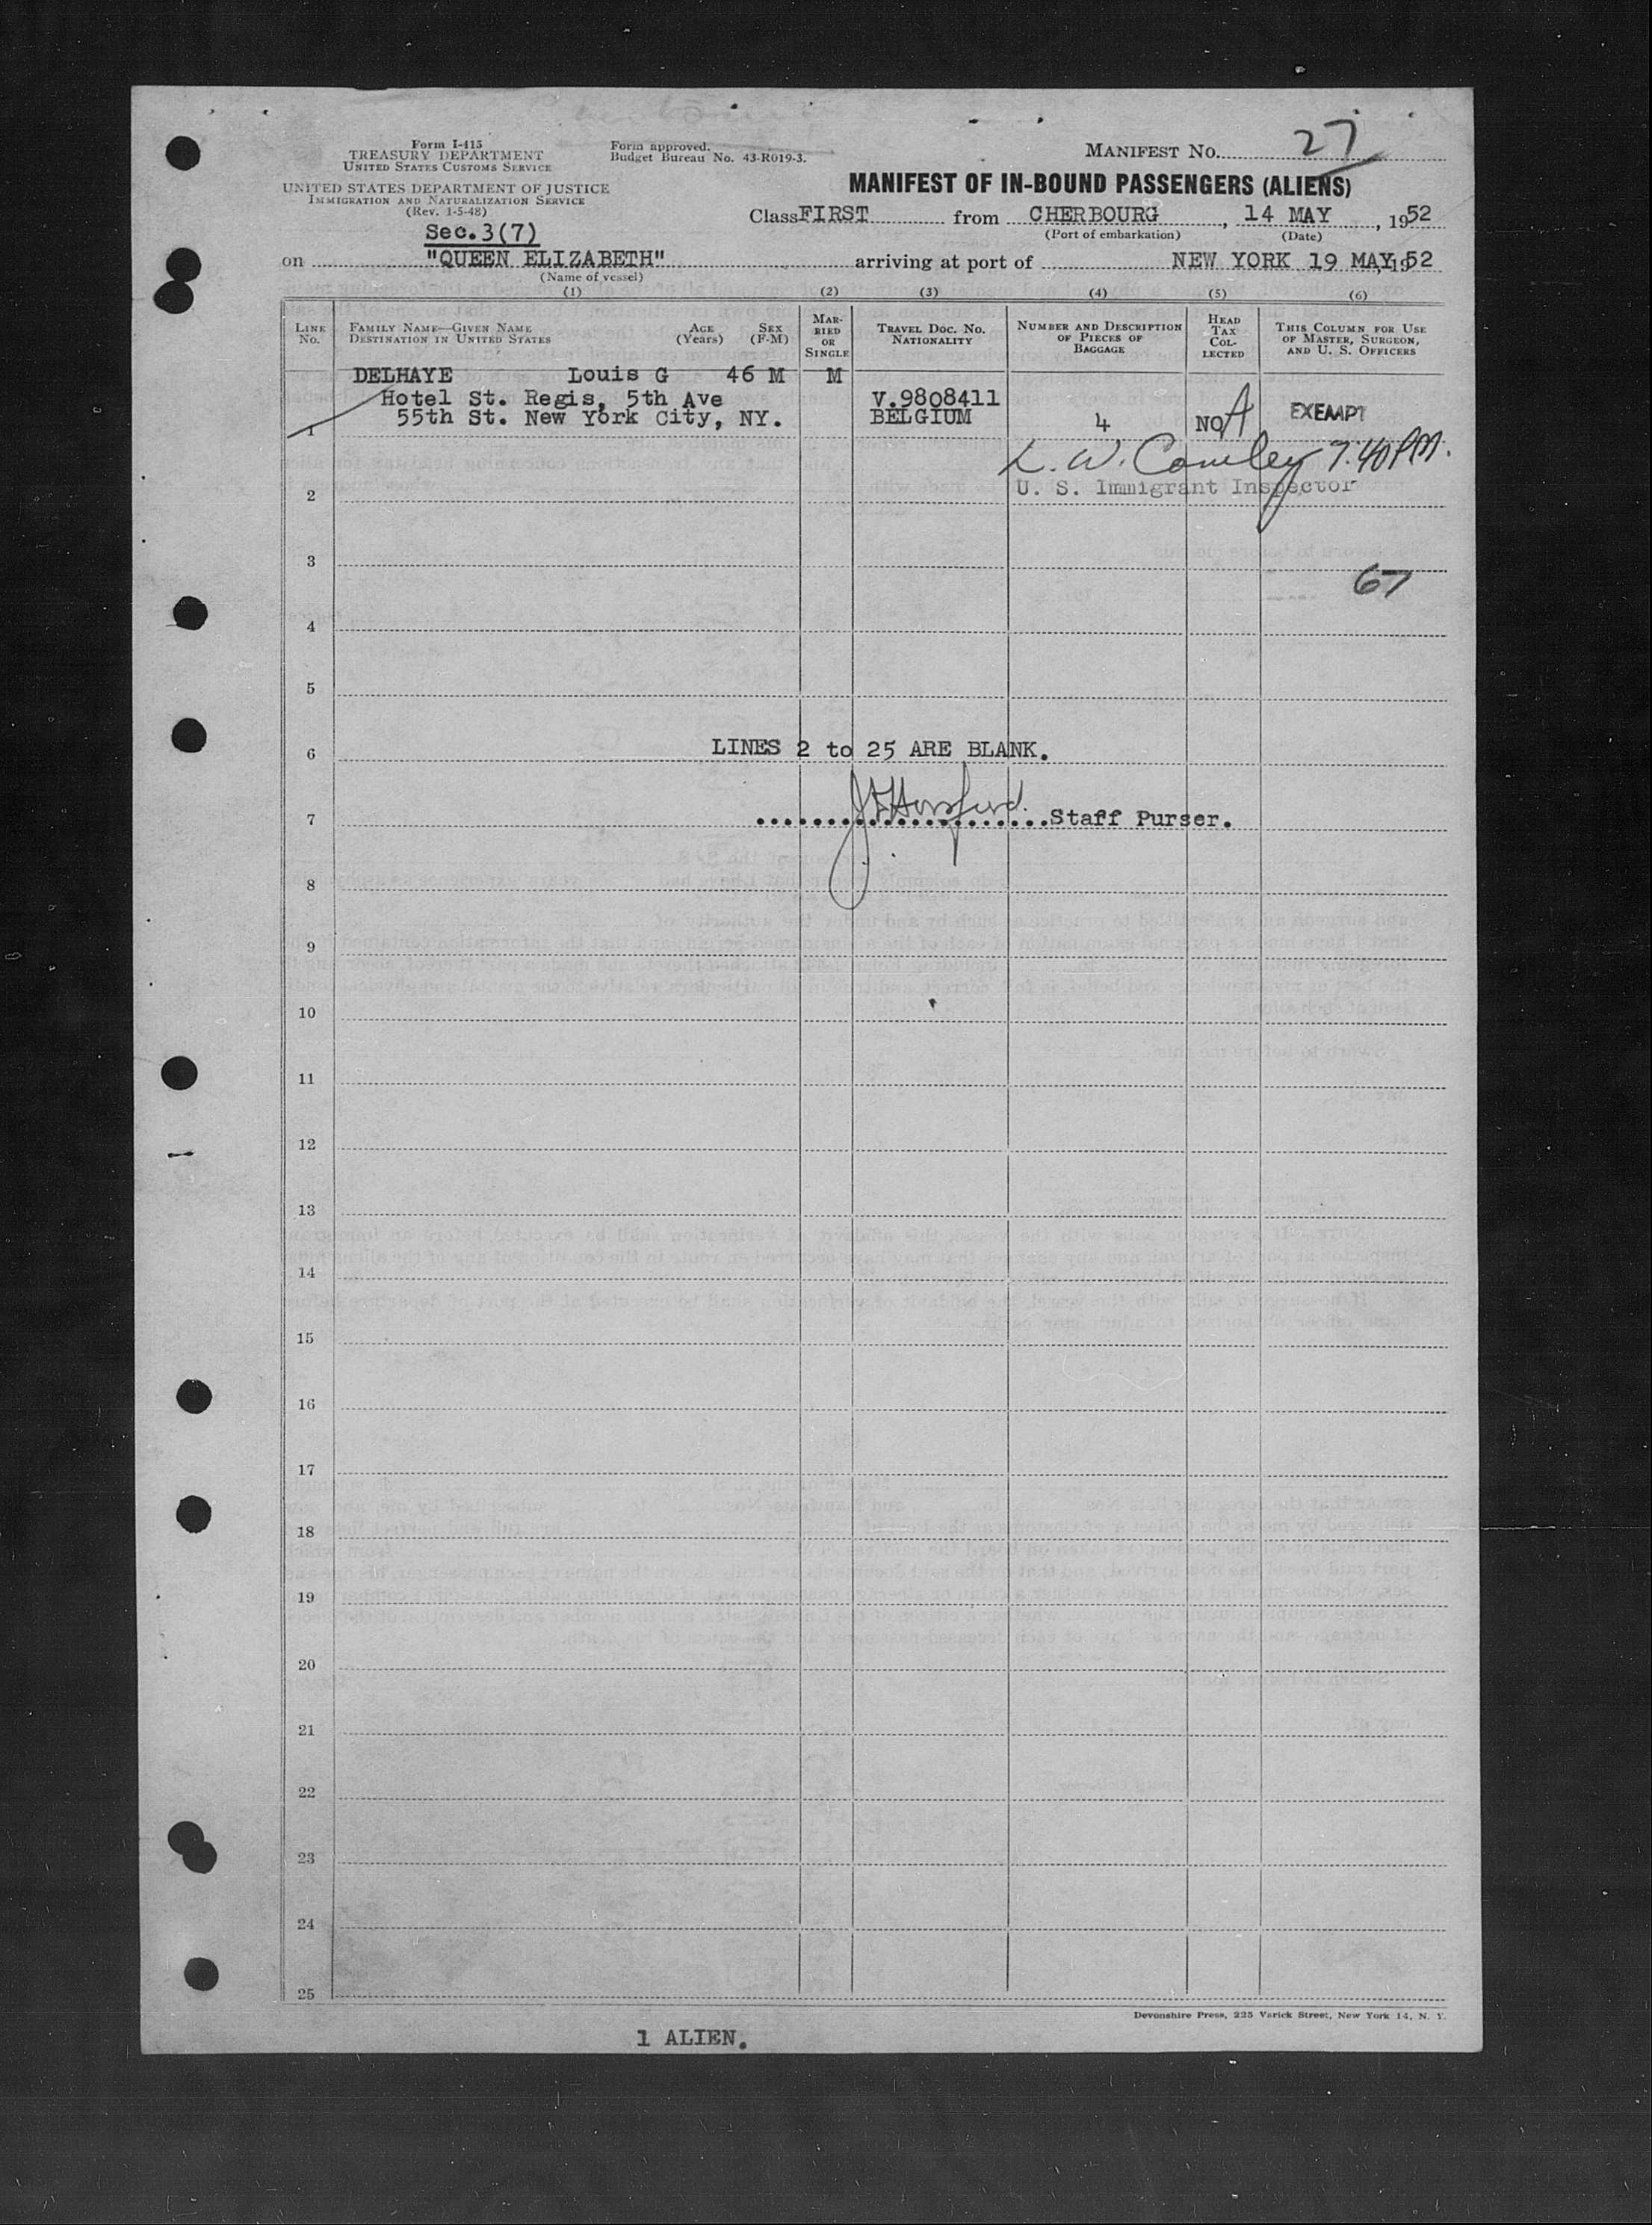 Form I-415
TREASURY DEPARTMENT
UNITED STATES CUSTOMS SERVICE
UNITED STATES DEPARTMENT OF JUSTICE
IMMIGRATION AND NATURALIZATION SERVICE
(Rev. 1-5-48)
Form approved.
Budget Bureau No. 43-R019-3.
MANIFEST No. 27
MANIFEST OF IN-BOUND PASSENGERS (ALIENS)
Class FIRST from CHERBOURG, 14 MAY, 1952
(Port of embarkation) (Date)
Sec.3(7)
on "QUEEN ELIZABETH" arriving at port of NEW YORK 19 MAY, 1952
(Name of vessel)
(1) (2) (3) (4) (5) (6)
LINE No.
FAMILY NAME—GIVEN NAME
DESTINATION IN UNITED STATES
AGE (Years)
SEX (F-M)
MARRIED OR SINGLE
TRAVEL DOC. NO.
NATIONALITY
NUMBER AND DESCRIPTION OF PIECES OF BAGGAGE
HEAD TAX COLLECTED
THIS COLUMN FOR USE OF MASTER, SURGEON, AND U. S. OFFICERS
DELHAYE Louis G 46 M M
Hotel St. Regis, 5th Ave V.9808411
55th St. New York City, NY. BELGIUM 4 NO A EXEMPT
1
L. W. Cowley 7.40 PM.
2 U. S. Immigrant Inspector
3
67
4
5
6 LINES 2 to 25 ARE BLANK.
7 Staff Purser.
8
9
10
11
12
13
14
15
16
17
18
19
20
21
22
23
24
25
Devonshire Press, 225 Varick Street, New York 14, N. Y.
1 ALIEN.